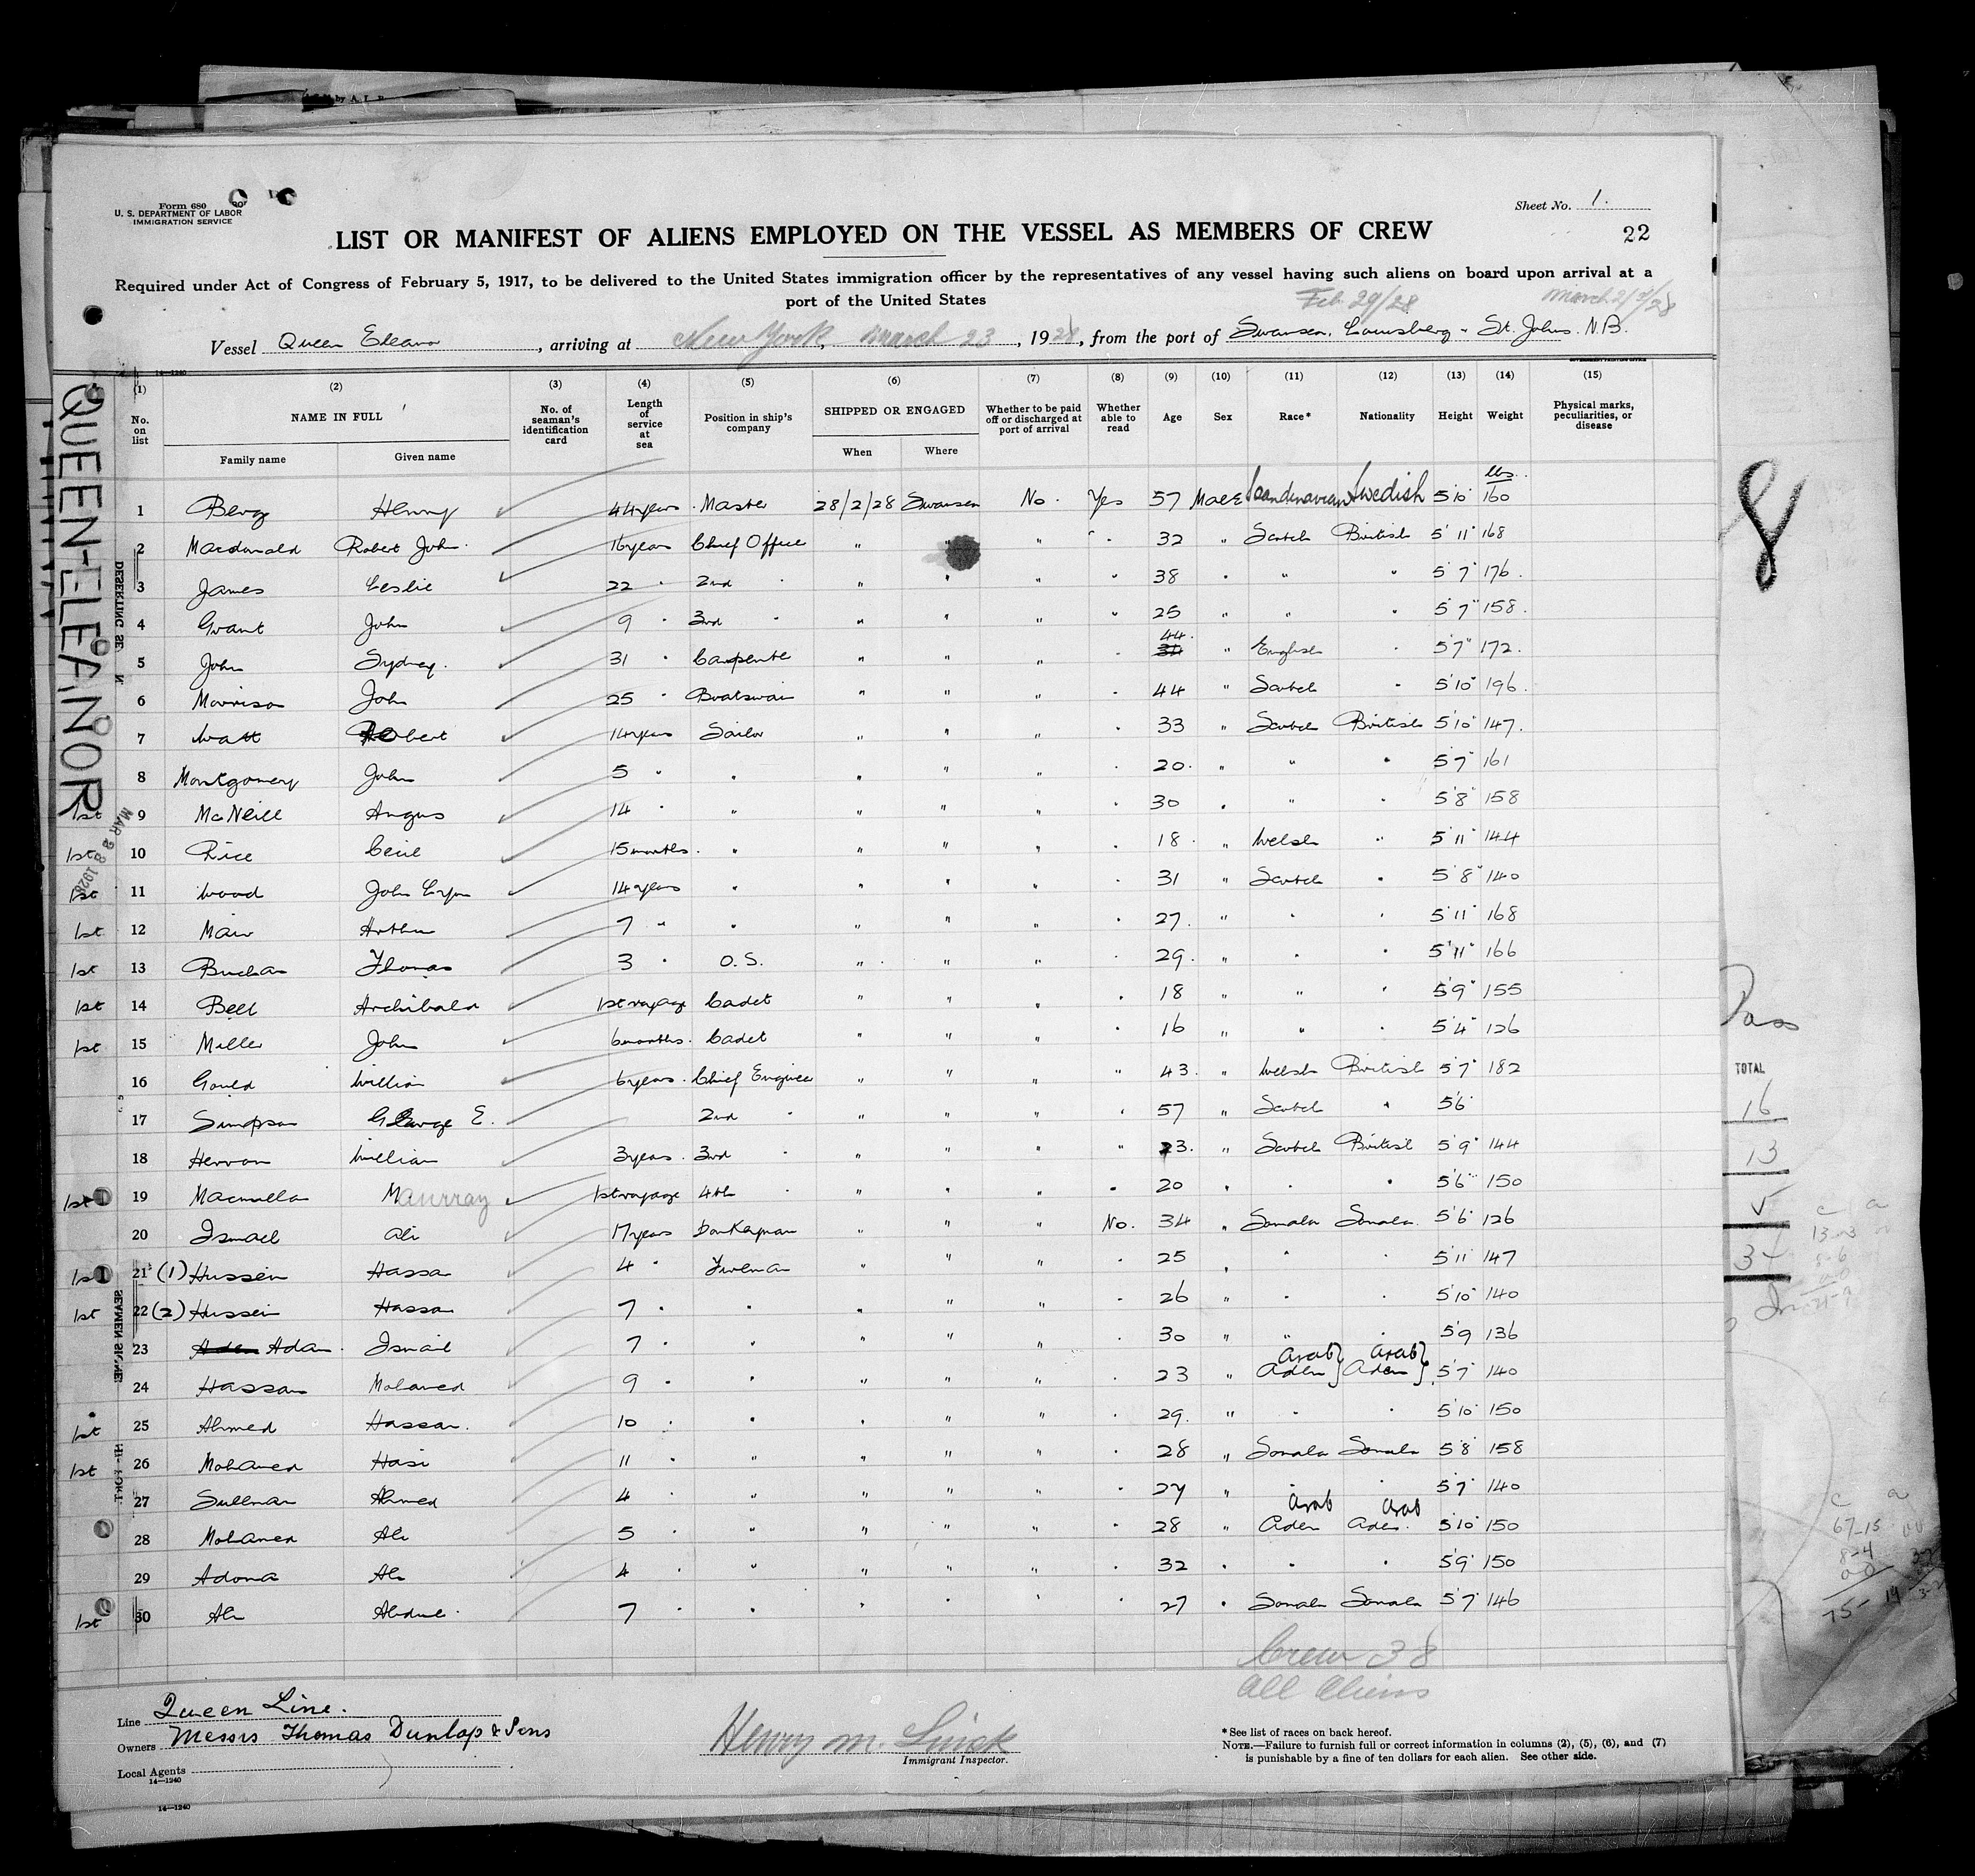 Form 680
U. S. DEPARTMENT OF LABOR
IMMIGRATION SERVICE
Sheet No. 1.
LIST OR MANIFEST OF ALIENS EMPLOYED ON THE VESSEL AS MEMBERS OF CREW
22
Required under Act of Congress of February 5, 1917, to be delivered to the United States immigration officer by the representatives of any vessel having such aliens on board upon arrival at a
port of the United States
Feb 29/28
Vessel Queen Eleanor, arriving at New York, March 23, 1928, from the port of Swansea, Louisberg St. Johns. N.B.
14—1240
QUEEN-ELEANOR
MAR 23 1928
(1) (2) (3) (4) (5) (6) (7) (8) (9) (10) (11) (12) (13) (14) (15)
No. on list NAME IN FULL No. of seaman's identification card Length of service at sea Position in ship's company SHIPPED OR ENGAGED Whether to be paid off or discharged at port of arrival Whether able to read Age Sex Race* Nationality Height Weight Physical marks, peculiarities, or disease
Family name Given name When Where
lbs.
1 Berg Henry 44 years Master 28/2/28 Swansea No. Yes 57 Male Scandinavian Swedish 5'10" 160
2 Macdonald Robert John. 16 years Chief Officer " " " " 32 " Scotch British 5'11" 168
3 James Leslie 22 " 2nd " " " " " 38 " " " 5'7" 176.
4 Grant John 9 " 3rd " " " " " 25 " " " 5'7" 158.
5 John Sydney. 31 " Carpenter " " " " 44. " English " 5'7" 172.
6 Morrison John 25 " Boatswain " " " " 44 " Scotch " 5'10" 196.
7 Watt Robert 14 years Sailor " " " 33 " Scotch British 5'10" 147.
8 Montgomery John 5 " " " " " " 20. " " " 5'7" 161
1st 9 McNeill Angus 14 " " " " " " 30 " " " 5'8" 158
1st 10 Rice Cecil 15 months. " " " " " 18. " Welsh " 5'11" 144
1st 11 Wood John 14 years " " " " " 31 " Scotch " 5'8" 140
1st 12 Mair Arthur 7 " " " " " " 27. " " " 5'11" 168
1st 13 Buchan Thomas 3 " O.S. " " " " 29. " " " 5'11" 166
1st 14 Bell Archibald 1st voyage Cadet " " " " 18 " " " 5'9" 155
1st 15 Miller John 6 months. Cadet " " " " 16 " " " 5'4" 126
16 Gould William 6 years. Chief Engineer " " " " 43. " Welsh British 5'7" 182
17 Simpson George E. 2nd " " " " " 57 " Scotch " 5'6"
18 Herron William 3 years. 3rd " " " " " 23. " Scotch British 5'9" 144
1st 19 Macmillan Murray 1st voyage 4th " " " " " 20 " " " 5'6" 150
20 Ismael Ali 17 years Donkeyman " " " No. 34 " Somala Somala. 5'6" 126
1st 21 (1) Hussein Hassan 4 " Fireman " " " 25 " " " 5'11" 147
1st 22 (2) Hussein Hassan 7 " " " " " " 26 " " " 5'10" 140
23 Aden Adan. Ismail 7 " " " " " " 30 " " " 5'9 136
Arab Arab
24 Hassan Mohamed 9 " " " " " " 23 " Aden Aden 5'7" 140
1st 25 Ahmed Hassan. 10 " " " " " " 29. " " " 5'10" 150
1st 26 Mohamed Hasi 11 " " " " " " 28 " Somala Somala 5'8" 158
27 Sullman Ahmed 4 " " " " " " 27 " " " 5'7" 140
Arab Arab
28 Mohamed Ali 5 " " " " " " 28 " Aden Aden. 5'10" 150
29 Adona Ali 4 " " " " " " 32 " " " 5'9" 150
1st 30 Ali Abdul. 7 " " " " " " 27 " Somala Somala 5'7" 146
Crew 38
All Aliens
Line Queen Line.
Owners Messrs Thomas Dunlop & Sons
Local Agents
14—1240
Henry M.
Immigrant Inspector.
*See list of races on back hereof.
NOTE.—Failure to furnish full or correct information in columns (2), (5), (6), and (7)
is punishable by a fine of ten dollars for each alien. See other side.
14—1240
8
Pass
TOTAL
16
13
5
34